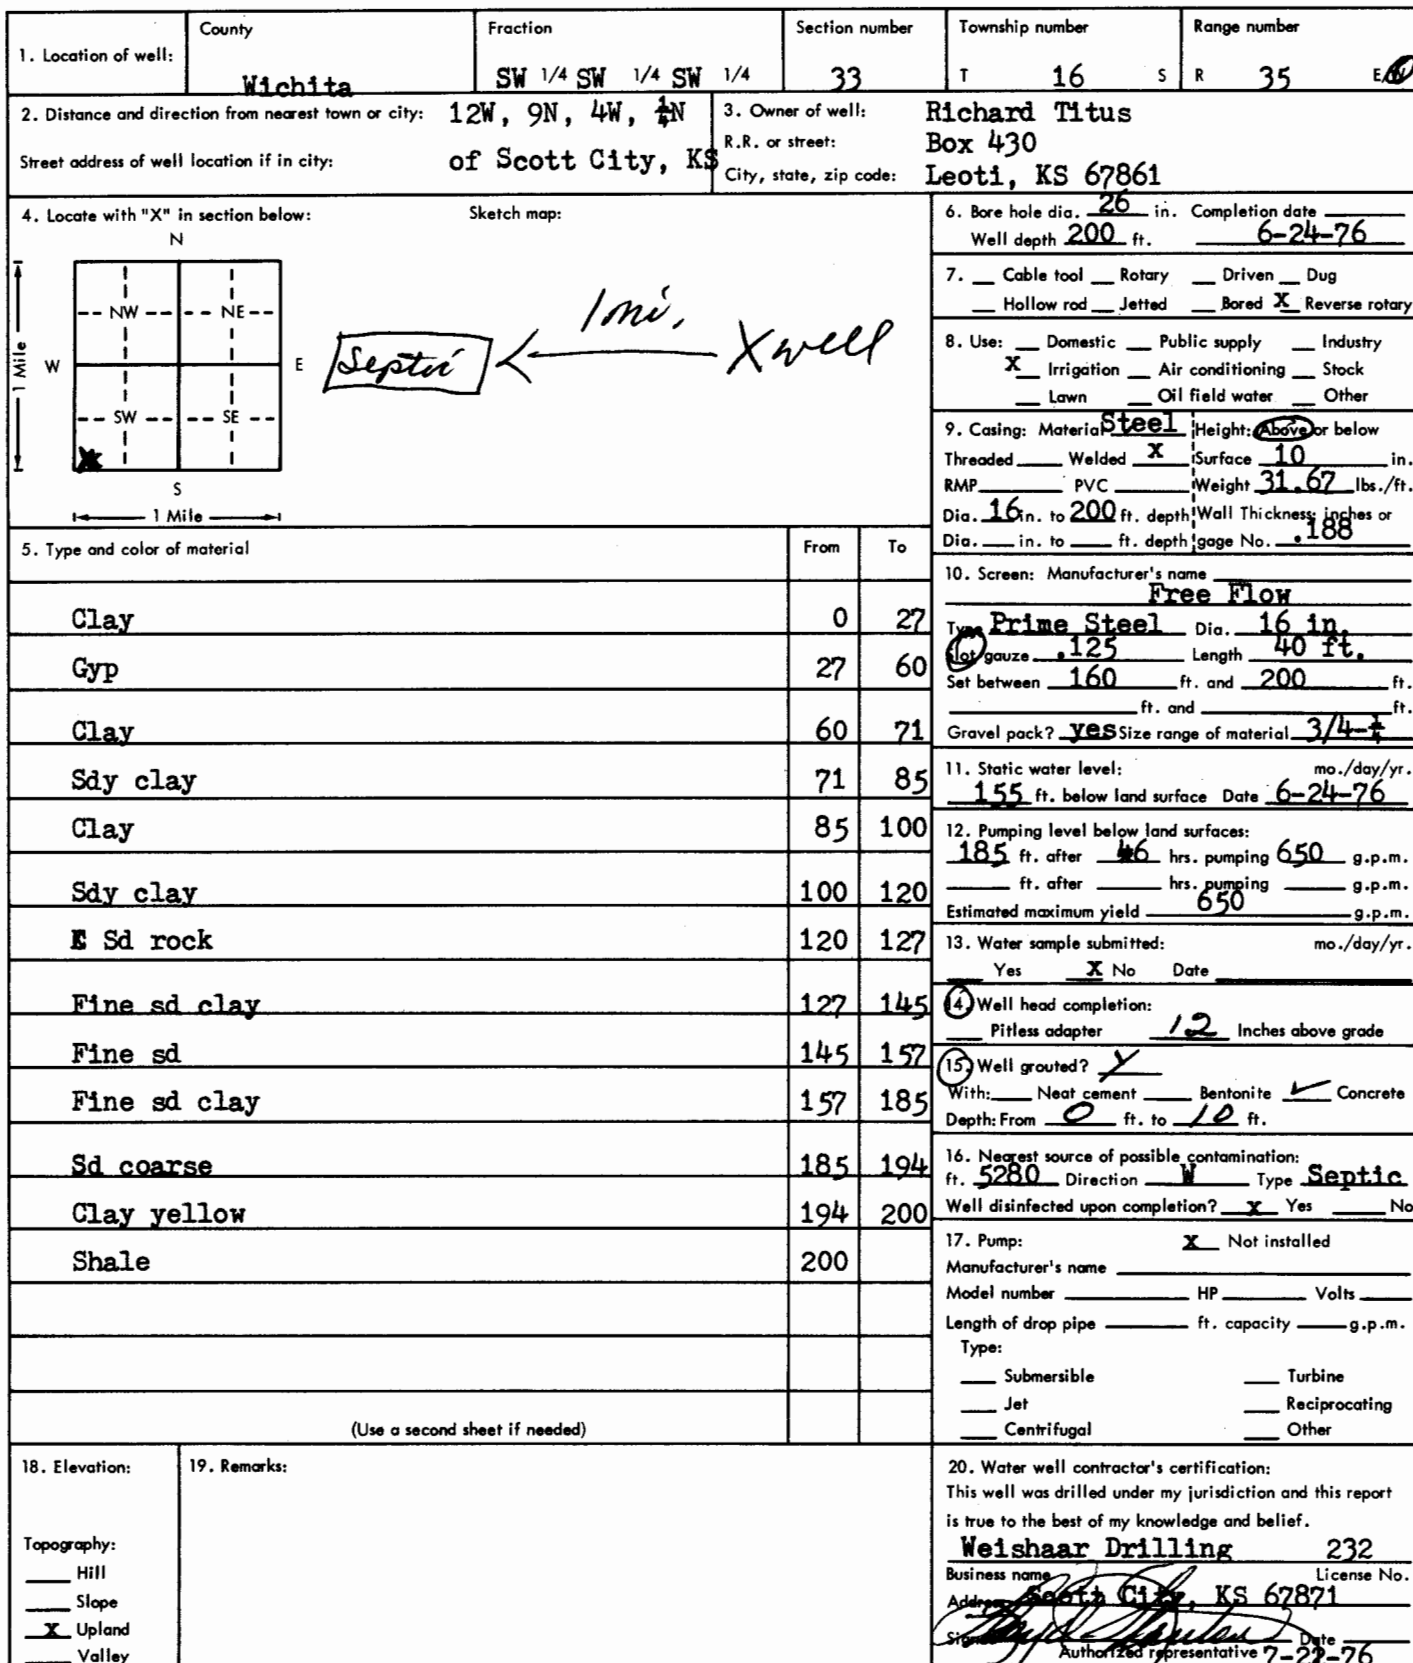 1. Location of well: County Wichita Fraction SW 1/4 SW 1/4 SW 1/4 Section number 33 Township number T 16 S Range number R 35 E/W
2. Distance and direction from nearest town or city: 12W, 9N, 4W, ¼N
Street address of well location if in city: of Scott City, KS
3. Owner of well: Richard Titus
R.R. or street: Box 430
City, state, zip code: Leoti, KS 67861
4. Locate with "X" in section below: Sketch map:
N
NW NE
W E
SW SE
X
S
1 Mile
1 Mile
Septic 1 mi. X well
5. Type and color of material From To
Clay 0 27
Gyp 27 60
Clay 60 71
Sdy clay 71 85
Clay 85 100
Sdy clay 100 120
Sd rock 120 127
Fine sd clay 127 145
Fine sd 145 157
Fine sd clay 157 185
Sd coarse 185 194
Clay yellow 194 200
Shale 200
(Use a second sheet if needed)
6. Bore hole dia. 26 in. Completion date
Well depth 200 ft. 6-24-76
7. Cable tool Rotary Driven Dug
Hollow rod Jetted Bored X Reverse rotary
8. Use: Domestic Public supply Industry
X Irrigation Air conditioning Stock
Lawn Oil field water Other
9. Casing: Material Steel Height: Above or below
Threaded Welded X Surface 10 in.
RMP PVC Weight 31.67 lbs./ft.
Dia. 16 in. to 200 ft. depth Wall Thickness: inches or
Dia. in. to ft. depth gage No. .188
10. Screen: Manufacturer's name
Free Flow
Type Prime Steel Dia. 16 in.
Slot gauze .125 Length 40 ft.
Set between 160 ft. and 200 ft.
ft. and ft.
Gravel pack? yes Size range of material 3/4-¼
11. Static water level: mo./day/yr.
155 ft. below land surface Date 6-24-76
12. Pumping level below land surfaces:
185 ft. after 6 hrs. pumping 650 g.p.m.
ft. after hrs. pumping g.p.m.
Estimated maximum yield 650 g.p.m.
13. Water sample submitted: mo./day/yr.
Yes X No Date
14. Well head completion:
Pitless adapter 12 Inches above grade
15. Well grouted? Y
With: Neat cement Bentonite ✓ Concrete
Depth: From 0 ft. to 10 ft.
16. Nearest source of possible contamination:
ft. 5280 Direction W Type Septic
Well disinfected upon completion? X Yes No
17. Pump: X Not installed
Manufacturer's name
Model number HP Volts
Length of drop pipe ft. capacity g.p.m.
Type:
Submersible Turbine
Jet Reciprocating
Centrifugal Other
18. Elevation:
Topography:
Hill
Slope
X Upland
Valley
19. Remarks:
20. Water well contractor's certification:
This well was drilled under my jurisdiction and this report
is true to the best of my knowledge and belief.
Weishaar Drilling 232
Business name License No.
Address Scott City, KS 67871
Signed Date
Authorized representative 7-22-76